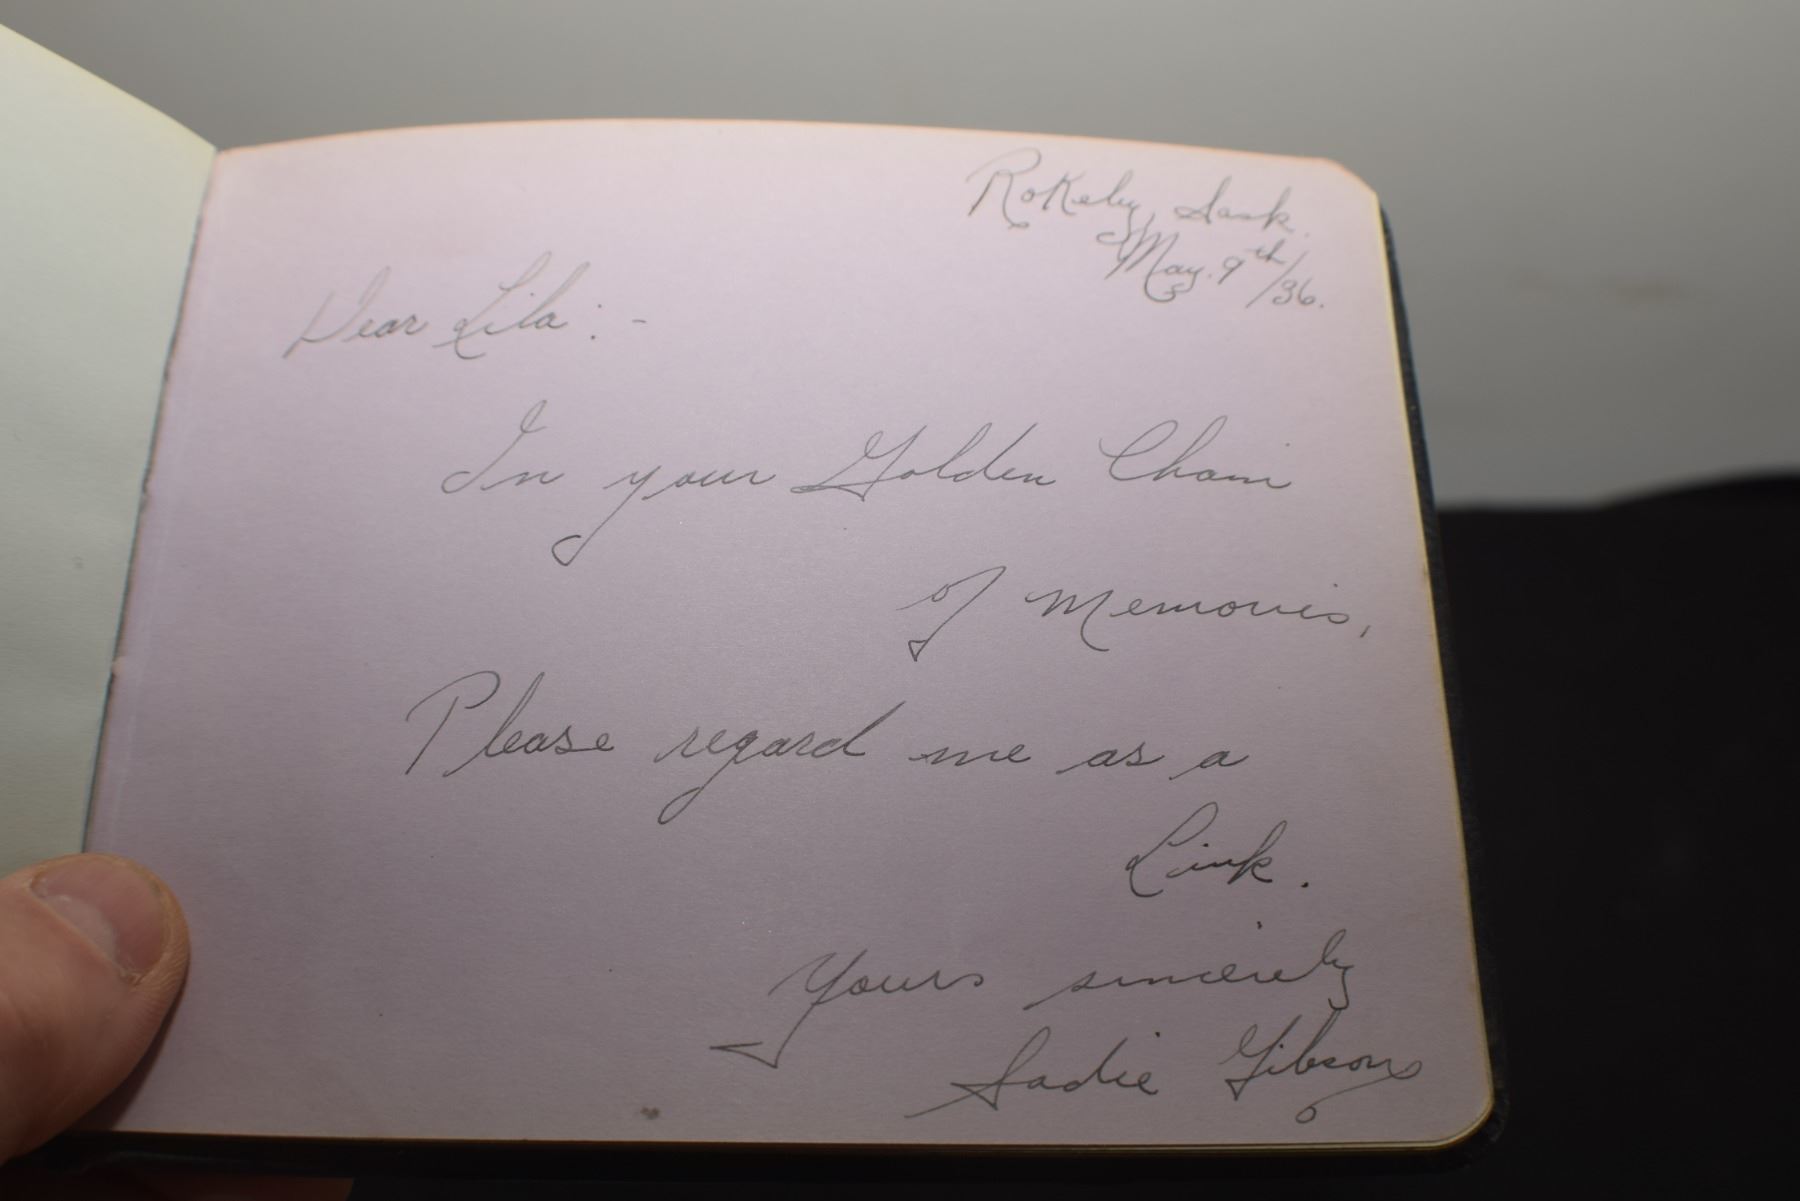 RoKeby, Sask.
May. 9th/36.
Dear Lila: -
In your Golden Chain
of Memories,
Please regard me as a
Link.
Yours sincerely
Sadie Gibson